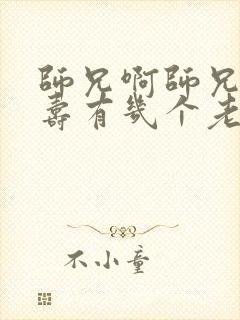 師兄啊師兄
壽有幾个老
不小童